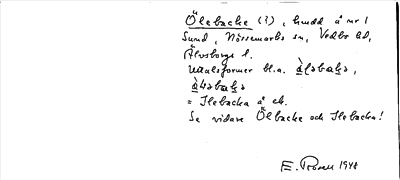 Ölebacke (?), hemdd å nr 1
Sund, Nössemarks sn, Vedbo hd,
Älvsborgs l.
Uttalsformer bl.a.
= Ilebacka å ek.
Se vidare Ölbacke och Ilebacka!
E. Rosell 1940